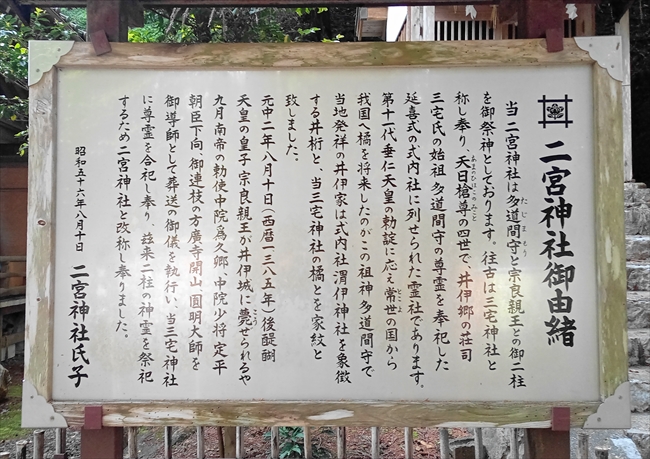 二宮神社御由緒
当二宮神社は多道間守と宗良親王との御二柱
を御祭神としております。往古は三宅神社と
称し奉り、天日槍尊の四世で、井伊郷の荘司
三宅氏の始祖多道間守の尊霊を奉祀した
延喜式の式内社に列せられた霊社であります。
第十一代垂仁天皇の勅諚に応え常世の国から
我国へ橘を将来したのがこの祖神多道間守で
当地発祥の井伊家は式内社渭伊神社を象徴
する井桁と、当三宅神社の橘とを家紋と
致しました。
元中二年八月十日(西暦一三八五年)後醍醐
天皇の皇子宗良親王が井伊城に薨せられるや
九月南帝の勅使中院爲久卿、中院少将定平
朝臣下向、御連枝の方廣寺開山、圓明大師を
御導師として葬送の御儀を執行い、当三宅神社
に尊霊を合祀し奉り、玆来二柱の神霊を祭祀
するため二宮神社と改称し奉りました。
昭和五十六年八月十日
二宮神社氏子